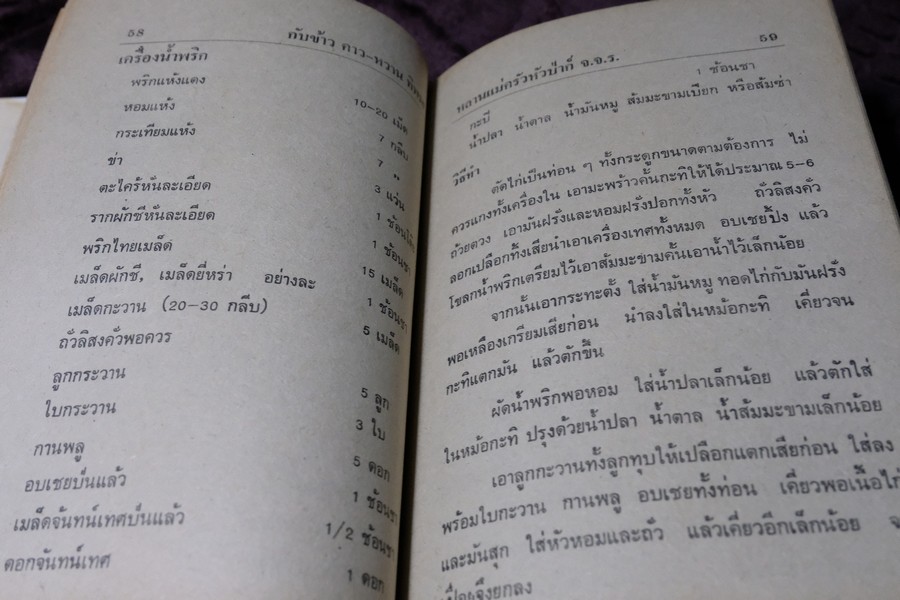 58 กับข้าว คาว-หวาน
เครื่องน้ำพริก
พริกแห้งแดง 10-20 เม็ด
หอมแห้ง 7 กลีบ
กระเทียมแห้ง 7 "
ข่า 3 แว่น
ตะไคร้หั่นละเอียด 1 ช้อนโต๊ะ
รากผักชีหั่นละเอียด 1 ช้อนชา
พริกไทยเมล็ด 15 เมล็ด
เมล็ดผักชี, เมล็ดยี่หร่า อย่างละ 1 ช้อนชา
เมล็ดกะวาน (20-30 กลีบ) 5 เมล็ด
ถั่วลิสงคั่วพอควร
ลูกกระวาน 5 ลูก
ใบกระวาน 3 ใบ
กานพลู 5 ดอก
อบเชยป่นแล้ว 1 ช้อนชา
เมล็ดจันทน์เทศป่นแล้ว 1/2 ช้อนชา
ดอกจันทน์เทศ 1 ดอก
หลานแม่ครัวหัวป่าก์ จ.จ.ร. 59
กะปิ 1 ช้อนชา
น้ำปลา น้ำตาล น้ำมันหมู ส้มมะขามเปียก หรือส้มซ่า
วิธีทำ ตัดไก่เป็นท่อน ๆ ทั้งกระดูกขนาดตามต้องการ ไม่
ควรแกงทั้งเครื่องใน เอามะพร้าวคั้นกะทิให้ได้ประมาณ 5-6
ถ้วยตวง เอามันฝรั่งและหอมฝรั่งปอกทั้งหัว ถั่วลิสงคั่ว
ลอกเปลือกทิ้งเสียนำเอาเครื่องเทศทั้งหมด อบเชยปิ้ง แล้ว
โขลกน้ำพริกเตรียมไว้เอาส้มมะขามคั้นเอาน้ำไว้เล็กน้อย
จากนั้นเอากระทะตั้ง ใส่น้ำมันหมู ทอดไก่กับมันฝรั่ง
พอเหลืองเกรียมเสียก่อน นำลงใส่ในหม้อกะทิ เคี่ยวจน
กะทิแตกมัน แล้วตักขึ้น
ผัดน้ำพริกพอหอม ใส่น้ำปลาเล็กน้อย แล้วตักใส่
ในหม้อกะทิ ปรุงด้วยน้ำปลา น้ำตาล น้ำส้มมะขามเล็กน้อย
เอาลูกกะวานทั้งลูกทุบให้เปลือกแตกเสียก่อน ใส่ลง
พร้อมใบกะวาน กานพลู อบเชยทั้งท่อน เคี่ยวพอเนื้อไก่
และมันสุก ใส่หัวหอมและถั่ว แล้วเคี่ยวอีกเล็กน้อย
เปื่อยจึงยกลง